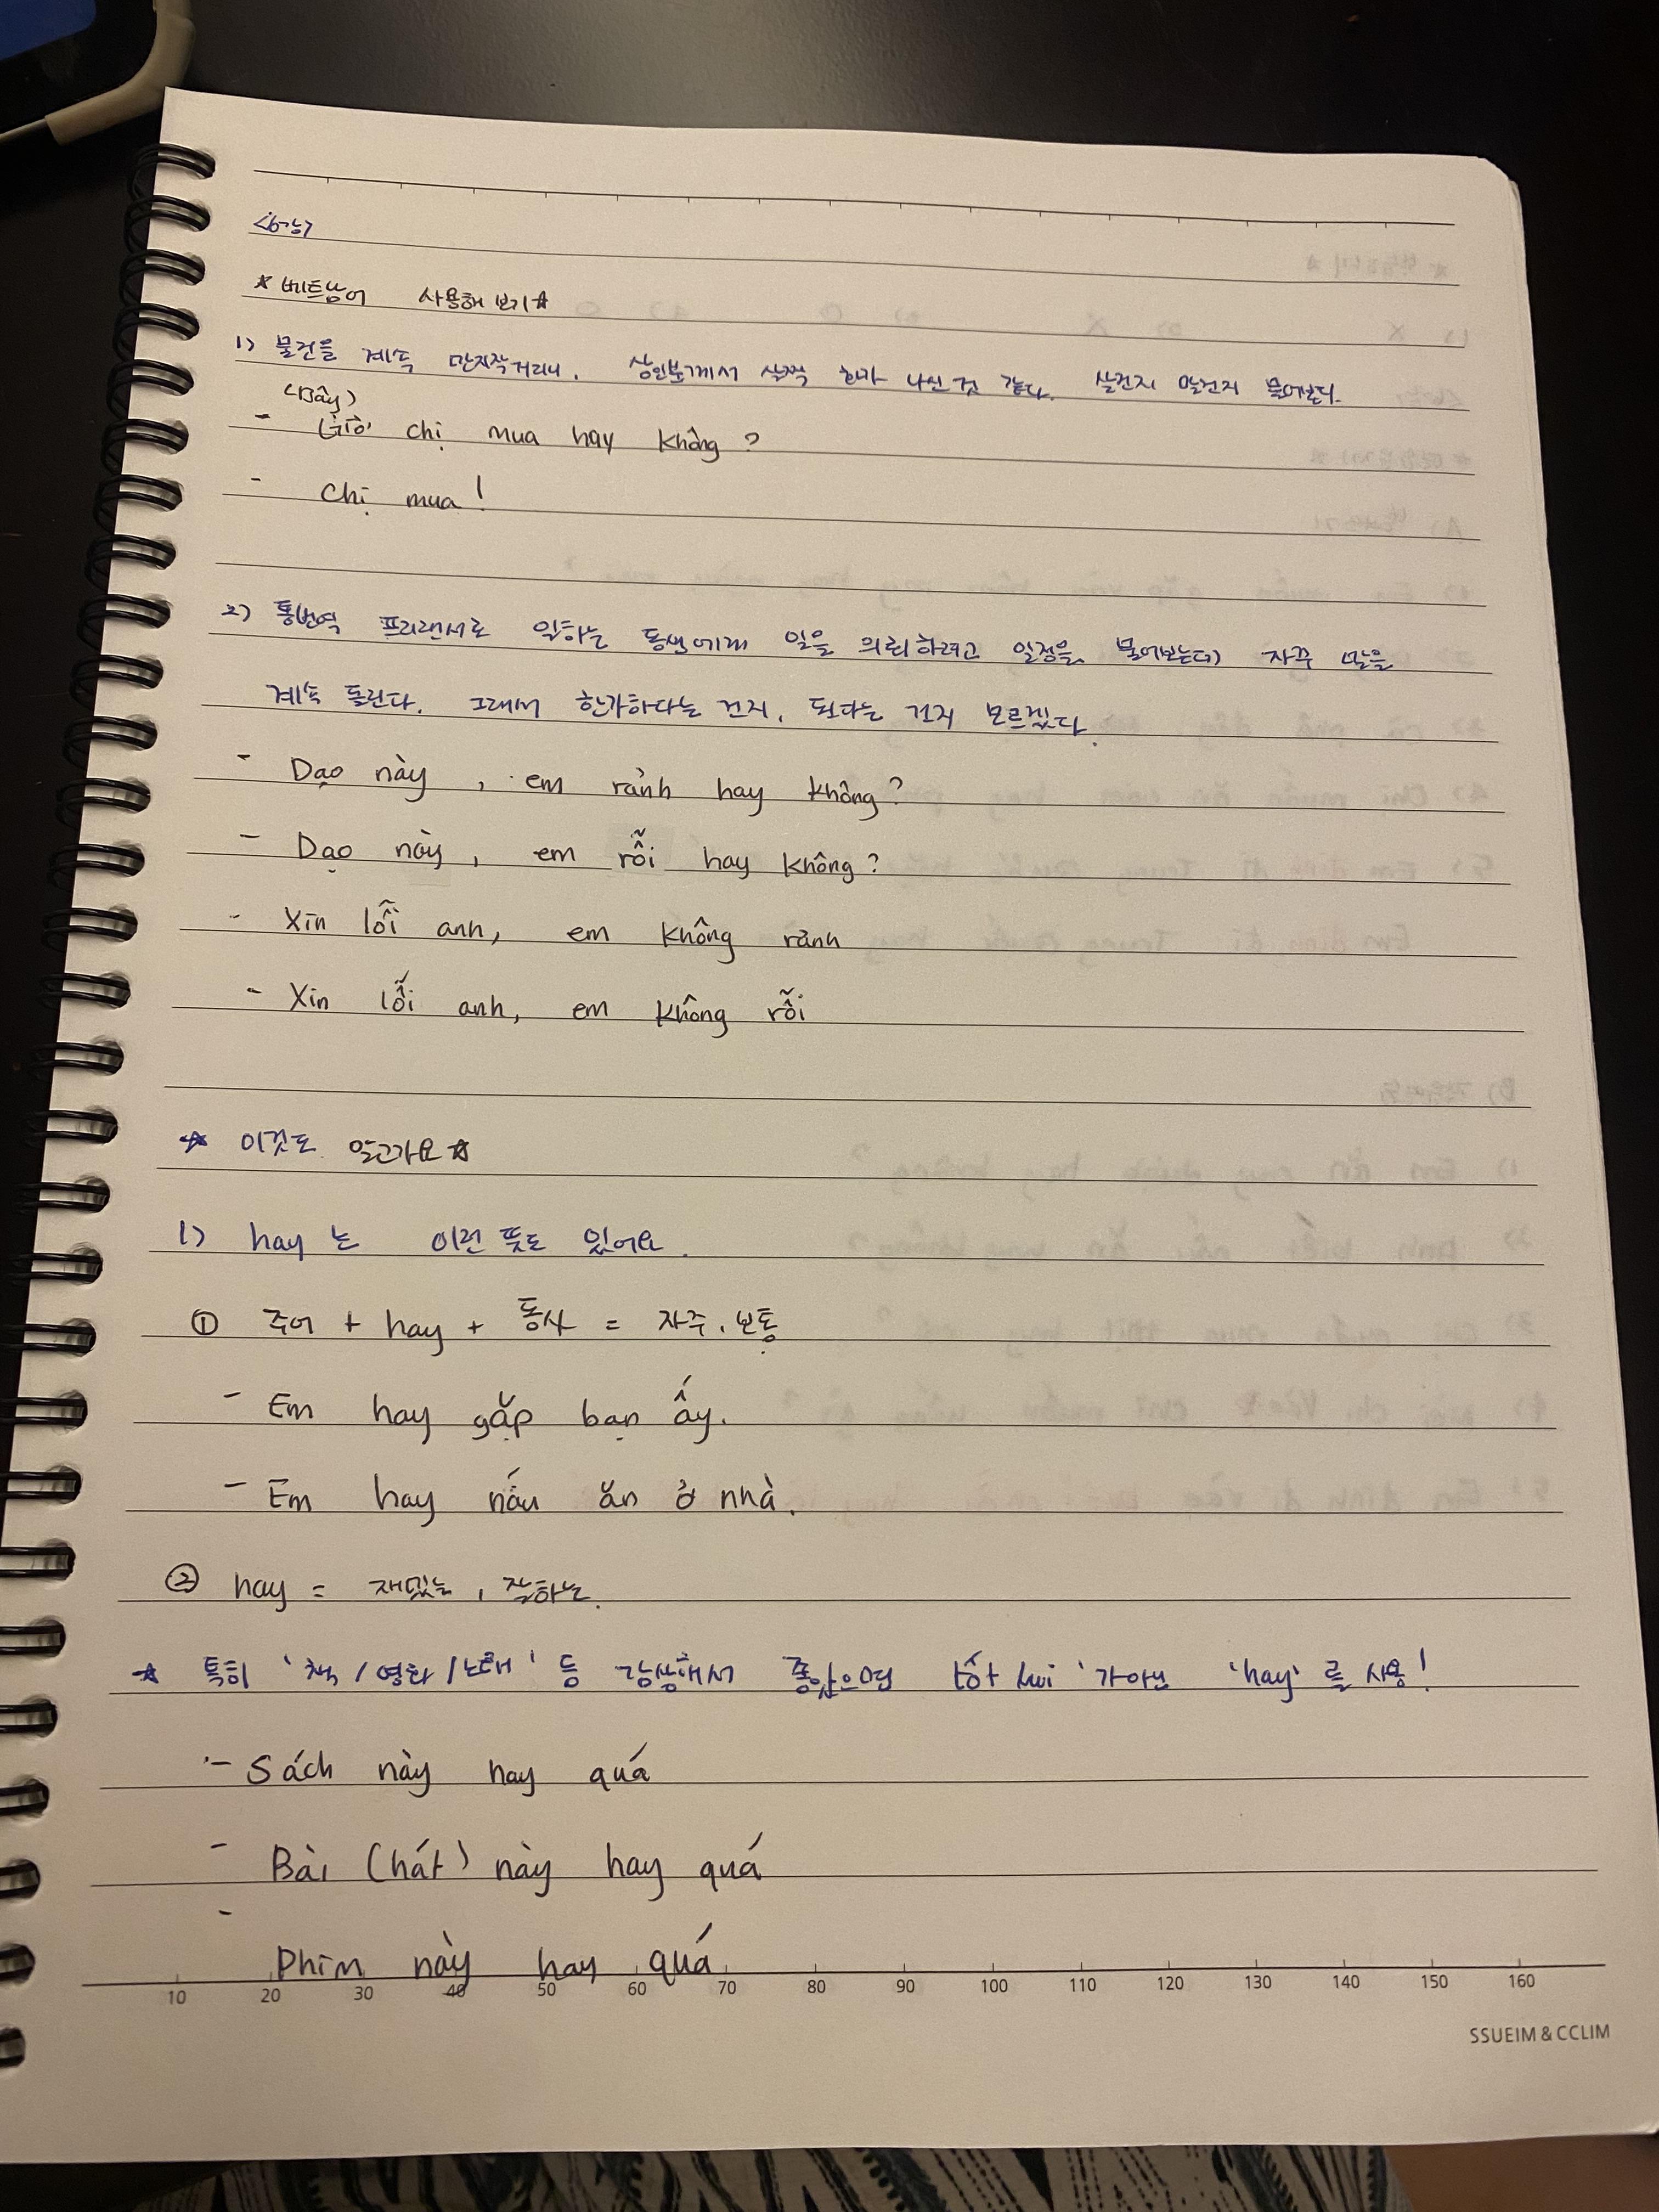 <6강>
☆ 베트남어 사용해 보기 ☆
1) 물건을 계속 만지작거리니, 상인분께서 살짝 화가 나신 것 같다. 살건지 말건지 물어본다.
(Bây)
- Giờ chị mua hay không?
- Chị mua!
2) 통번역 프리랜서로 일하는 동생에게 일을 의뢰하려고 일정을 물어보는데, 자꾸 말을
계속 돌린다. 그래서 한가하다는 건지, 된다는 건지 모르겠다.
- Dạo này, em rảnh hay không?
- Dạo này, em rỗi hay không?
- Xin lỗi anh, em không rảnh
- Xin lỗi anh, em không rỗi
☆ 이것도 알고가요 ☆
1) hay 는 이런 뜻도 있어요.
① 주어 + hay + 동사 = 자주, 보통
- Em hay gặp bạn ấy.
- Em hay nấu ăn ở nhà.
② hay = 재밌는, 잘하는.
☆ 특히 '책/영화/노래' 등 감상해서 좋았으면 tốt vui '가아닌 'hay'를 사용!
- Sách này hay quá
- Bài (hát) này hay quá
- Phim này hay quá
10 20 30 40 50 60 70 80 90 100 110 120 130 140 150 160
SSUEIM & CCLIM